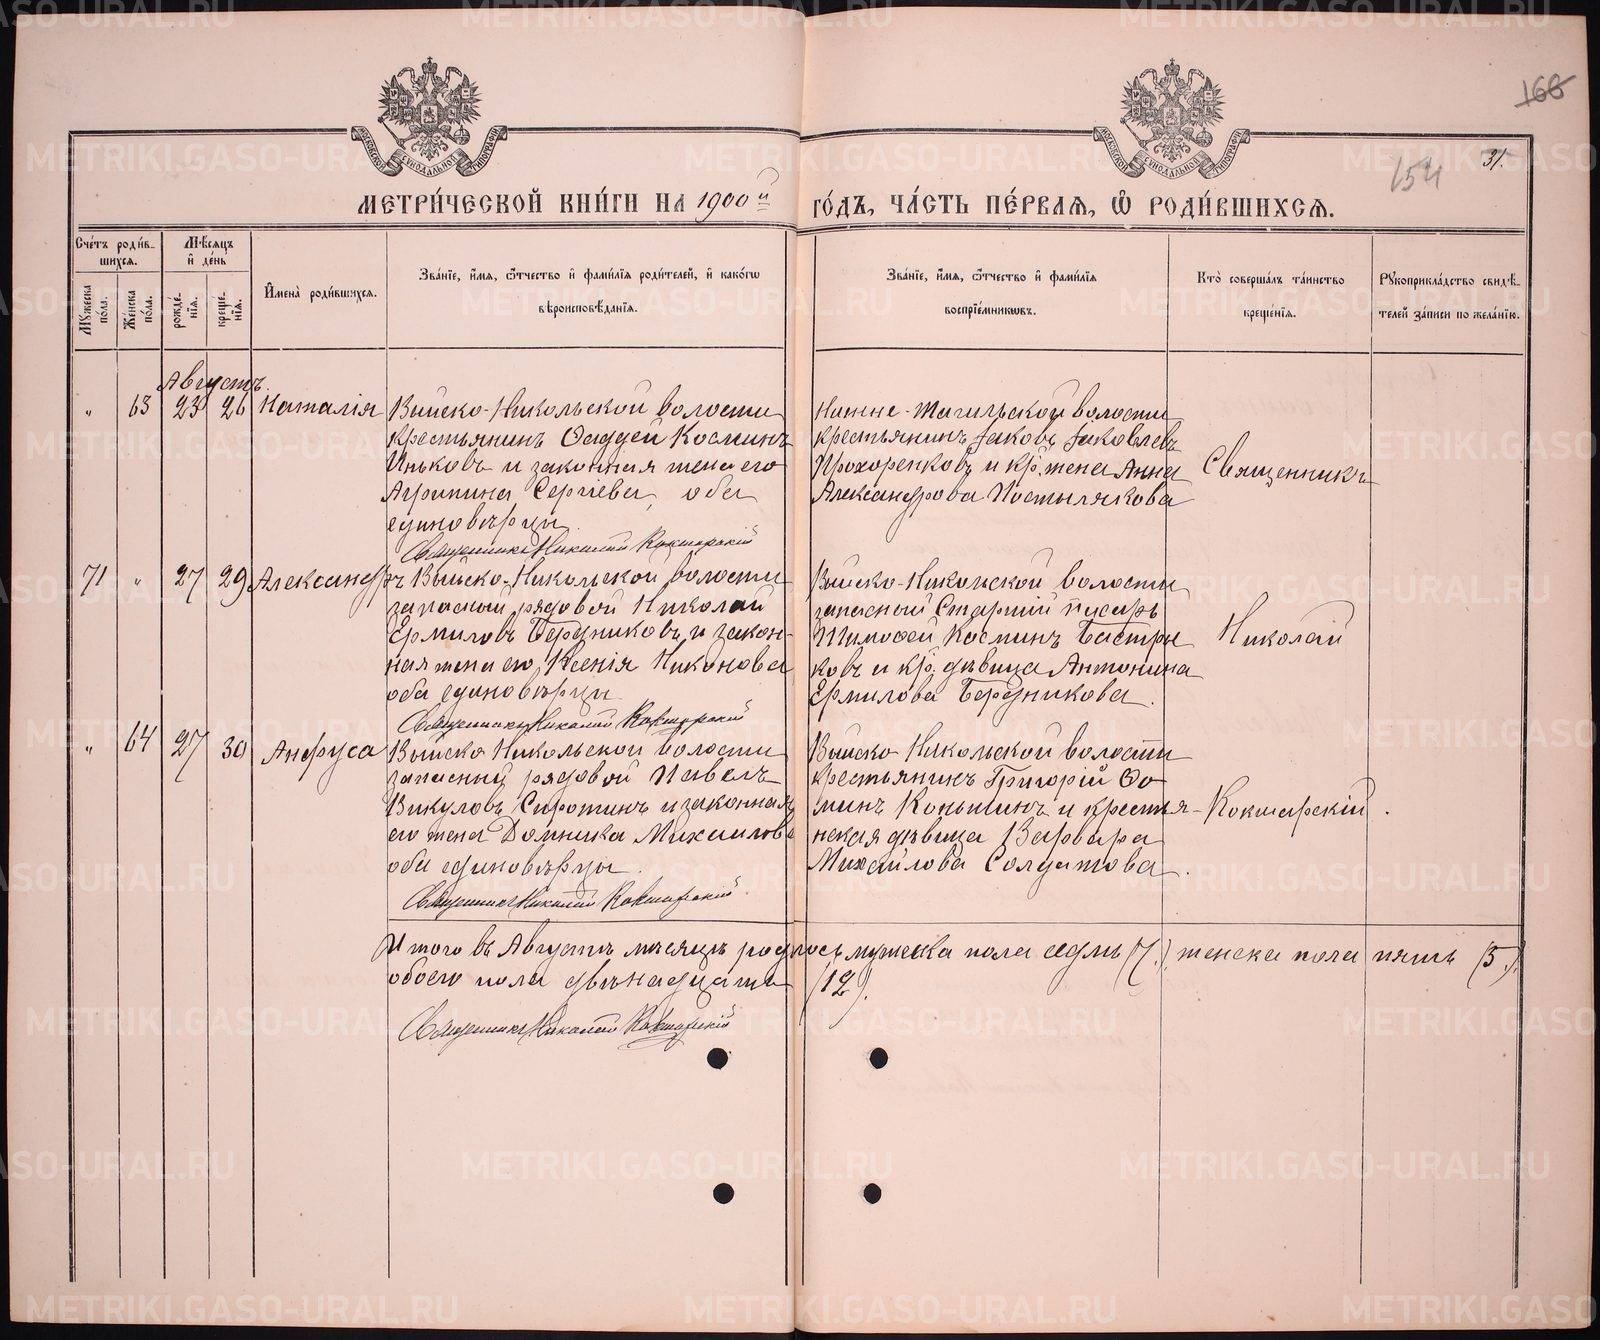 166
154
31.
МОСКОВСКОЙ СУНОДАЛЬНОЙ ТИПОГРАФІИ
МОСКОВСКОЙ СУНОДАЛЬНОЙ ТИПОГРАФІИ
МЕТРИ́ЧЕСКОЙ КНИ́ГИ НА 1900й ГО́ДЪ, ЧА́СТЬ ПЕ́РВАЯ, Ѽ РОДИ́ВШИХСЯ.
Сче́тъ роди́вшихся.
Мѣ́сяцъ и҆ де́нь
Мꙋ́жеска по́ла.
Же́нска по́ла.
рожде́нїя.
креще́нїя.
И҆мена̀ роди́вшихся.
Зва́нїе, и҆́мя, ѻ҆́тчество и҆ фами́лїя роди́телей, и҆ како́гѡ
вѣроисповѣ́данїя.
Зва́нїе, и҆́мя, ѻ҆́тчество и҆ фами́лїя
воспрїе́мникѡвъ.
Кто̀ соверша́лъ та́инство
креще́нїя.
Рꙋкоприкла́дство свидѣ́телей за́писи по жела́нїю.
Августъ.
" 63 23 26 Наталія
Выйско-Никольской волости
крестьянинъ Ѳаддей Косминъ
Иньковъ и законная жена его
Агрипина Сергіева, оба
единовѣрцы.
Священникъ Николай Кокшарскій
Нижне-Тагильской волости
крестьянинъ Іаковъ Іаковлевъ
Прохоренковъ и кр. жена Анна
Александрова Постылякова
Священникъ
71 " 27 29 Александръ
Выйско-Никольской волости
запасный рядовой Николай
Ермиловъ Бердниковъ и закон-
ная жена его Ксенія Никонова
оба единовѣрцы
Священникъ Николай Кокшарскій
Выйско-Никольской волости
запасный Старшій гусаръ
Тимоѳей Косминъ Бастры
ковъ и кр. дѣвица Антонина
Ермилова Бердникова.
Николай
" 64 27 30 Анфуса
Выйско Никольской волости
запасный рядовой Павелъ
Викуловъ Сиротинъ и законная
его жена Домника Михаилова
оба единовѣрцы.
Священникъ Николай Кокшарскій.
Выйско Никольской волости
крестьянинъ Григорій Ѳо
минъ Копышинъ и крестья-
нская дѣвица Варвара
Михайлова Солдатова.
Кокшарскій.
Итого въ Августѣ мѣсяцѣ родилось мужеска пола седмь (7.), женска пола пять (5.).
обоего пола двѣнадцать (12).
Священникъ Николай Кокшарскій
METRIKI.GASO-URAL.RU